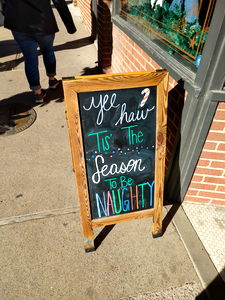 yee haw
Tis' The
Season
To Be
NAUGHTY